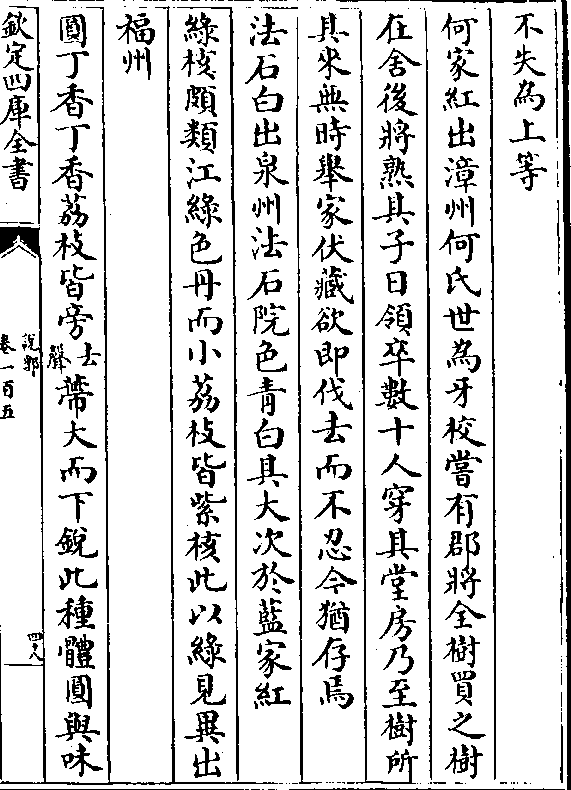 不失為上等
何家紅出漳州何氏世為牙校嘗有郡將全樹買之樹
在舍後將熟其子日領卒數十人穿其堂房乃至樹所
其來無時舉家伏藏欲即伐去而不忍今猶存焉
法石白出泉州法石院色青白其大次於藍家紅
綠核頗類江綠色丹而小荔枝皆紫核此以綠見異出
福州
圓丁香丁香荔枝皆旁去聲蔕大而下銳此種體圓與味
欽定四庫全書
說郛
卷一百五
四八